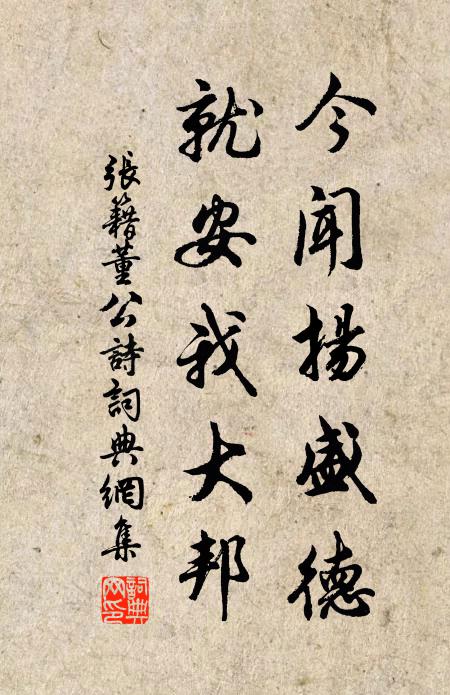 今聞揚盛德
就安我大邦
張籍董公詩詞典網集
詞典網印